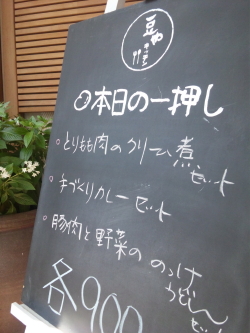 豆や
キッチン
本日の一押し
。とりもも肉のクリーム煮
セット
。手づくりカレーセット
。豚肉と野菜ののっけ
うどんセット
各900